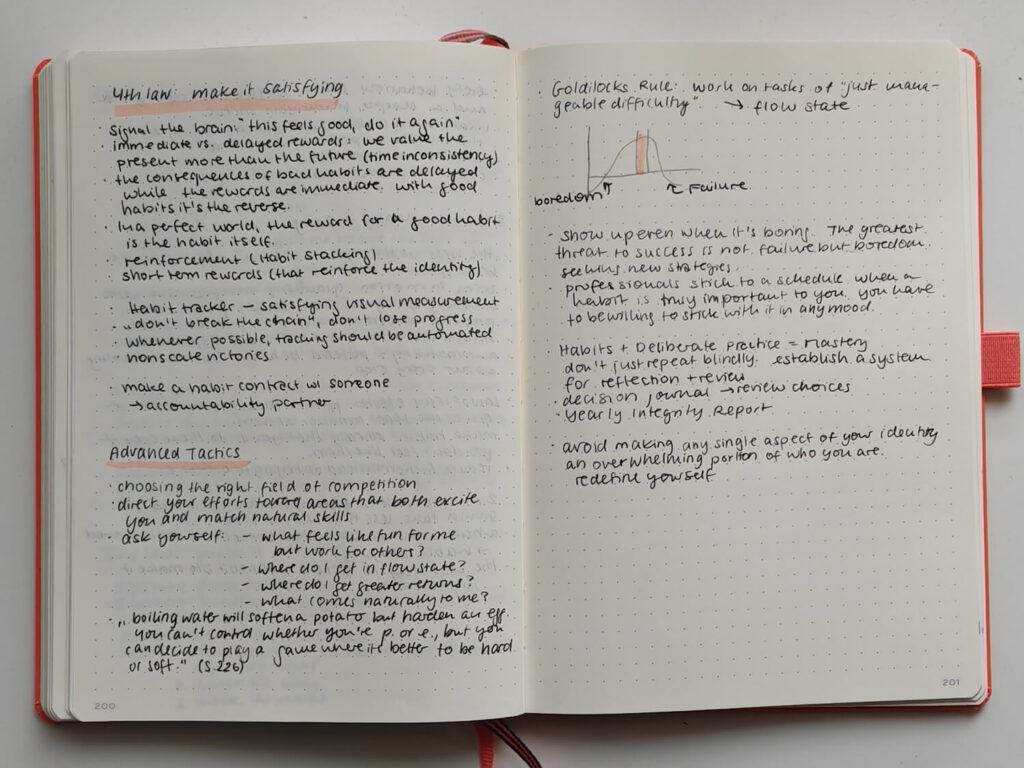 4th law: make it satisfying
· signal the brain: "this feels good, do it again"
· immediate vs. delayed rewards: we value the
present more than the future (time inconsistency)
· the consequences of bad habits are delayed
while the rewards are immediate. with good
habits it's the reverse.
· in a perfect world, the reward for a good habit
is the habit itself.
· reinforcement (Habit stacking)
· short term rewards (that reinforce the identity)
· Habit tracker – satisfying visual measurement
· „don't break the chain", don't lose progress
· whenever possible, tracking should be automated
· nonscale victories
· make a habit contract w/ someone
→ accountability partner
Advanced Tactics
· choosing the right field of competition
· direct your efforts toward areas that both excite
you and match natural skills
· ask yourself: – what feels like fun for me
but work for others?
– where do I get in flow state?
– where do I get greater returns?
– what comes naturally to me?
· „boiling water will soften a potato but harden an
you can't control whether you're p. or e., but you
can decide to play a game where it's better to be hard
or soft." (S.226)
200
· Goldilocks Rule: work on tasks of "just mana-
geable difficulty". → flow state
boredom
Failure
· show up even when it's boring. The greatest
threat to success is not failure but boredom.
seeking new strategies.
· professionals stick to a schedule. when a
habit is truly important to you, you have
to be willing to stick with it in any mood.
· Habits + Deliberate Practice = mastery
don't just repeat blindly. establish a system
for reflection + review
· decision journal → review choices
· Yearly Integrity Report
· avoid making any single aspect of your identity
an overwhelming portion of who you are.
redefine yourself
201